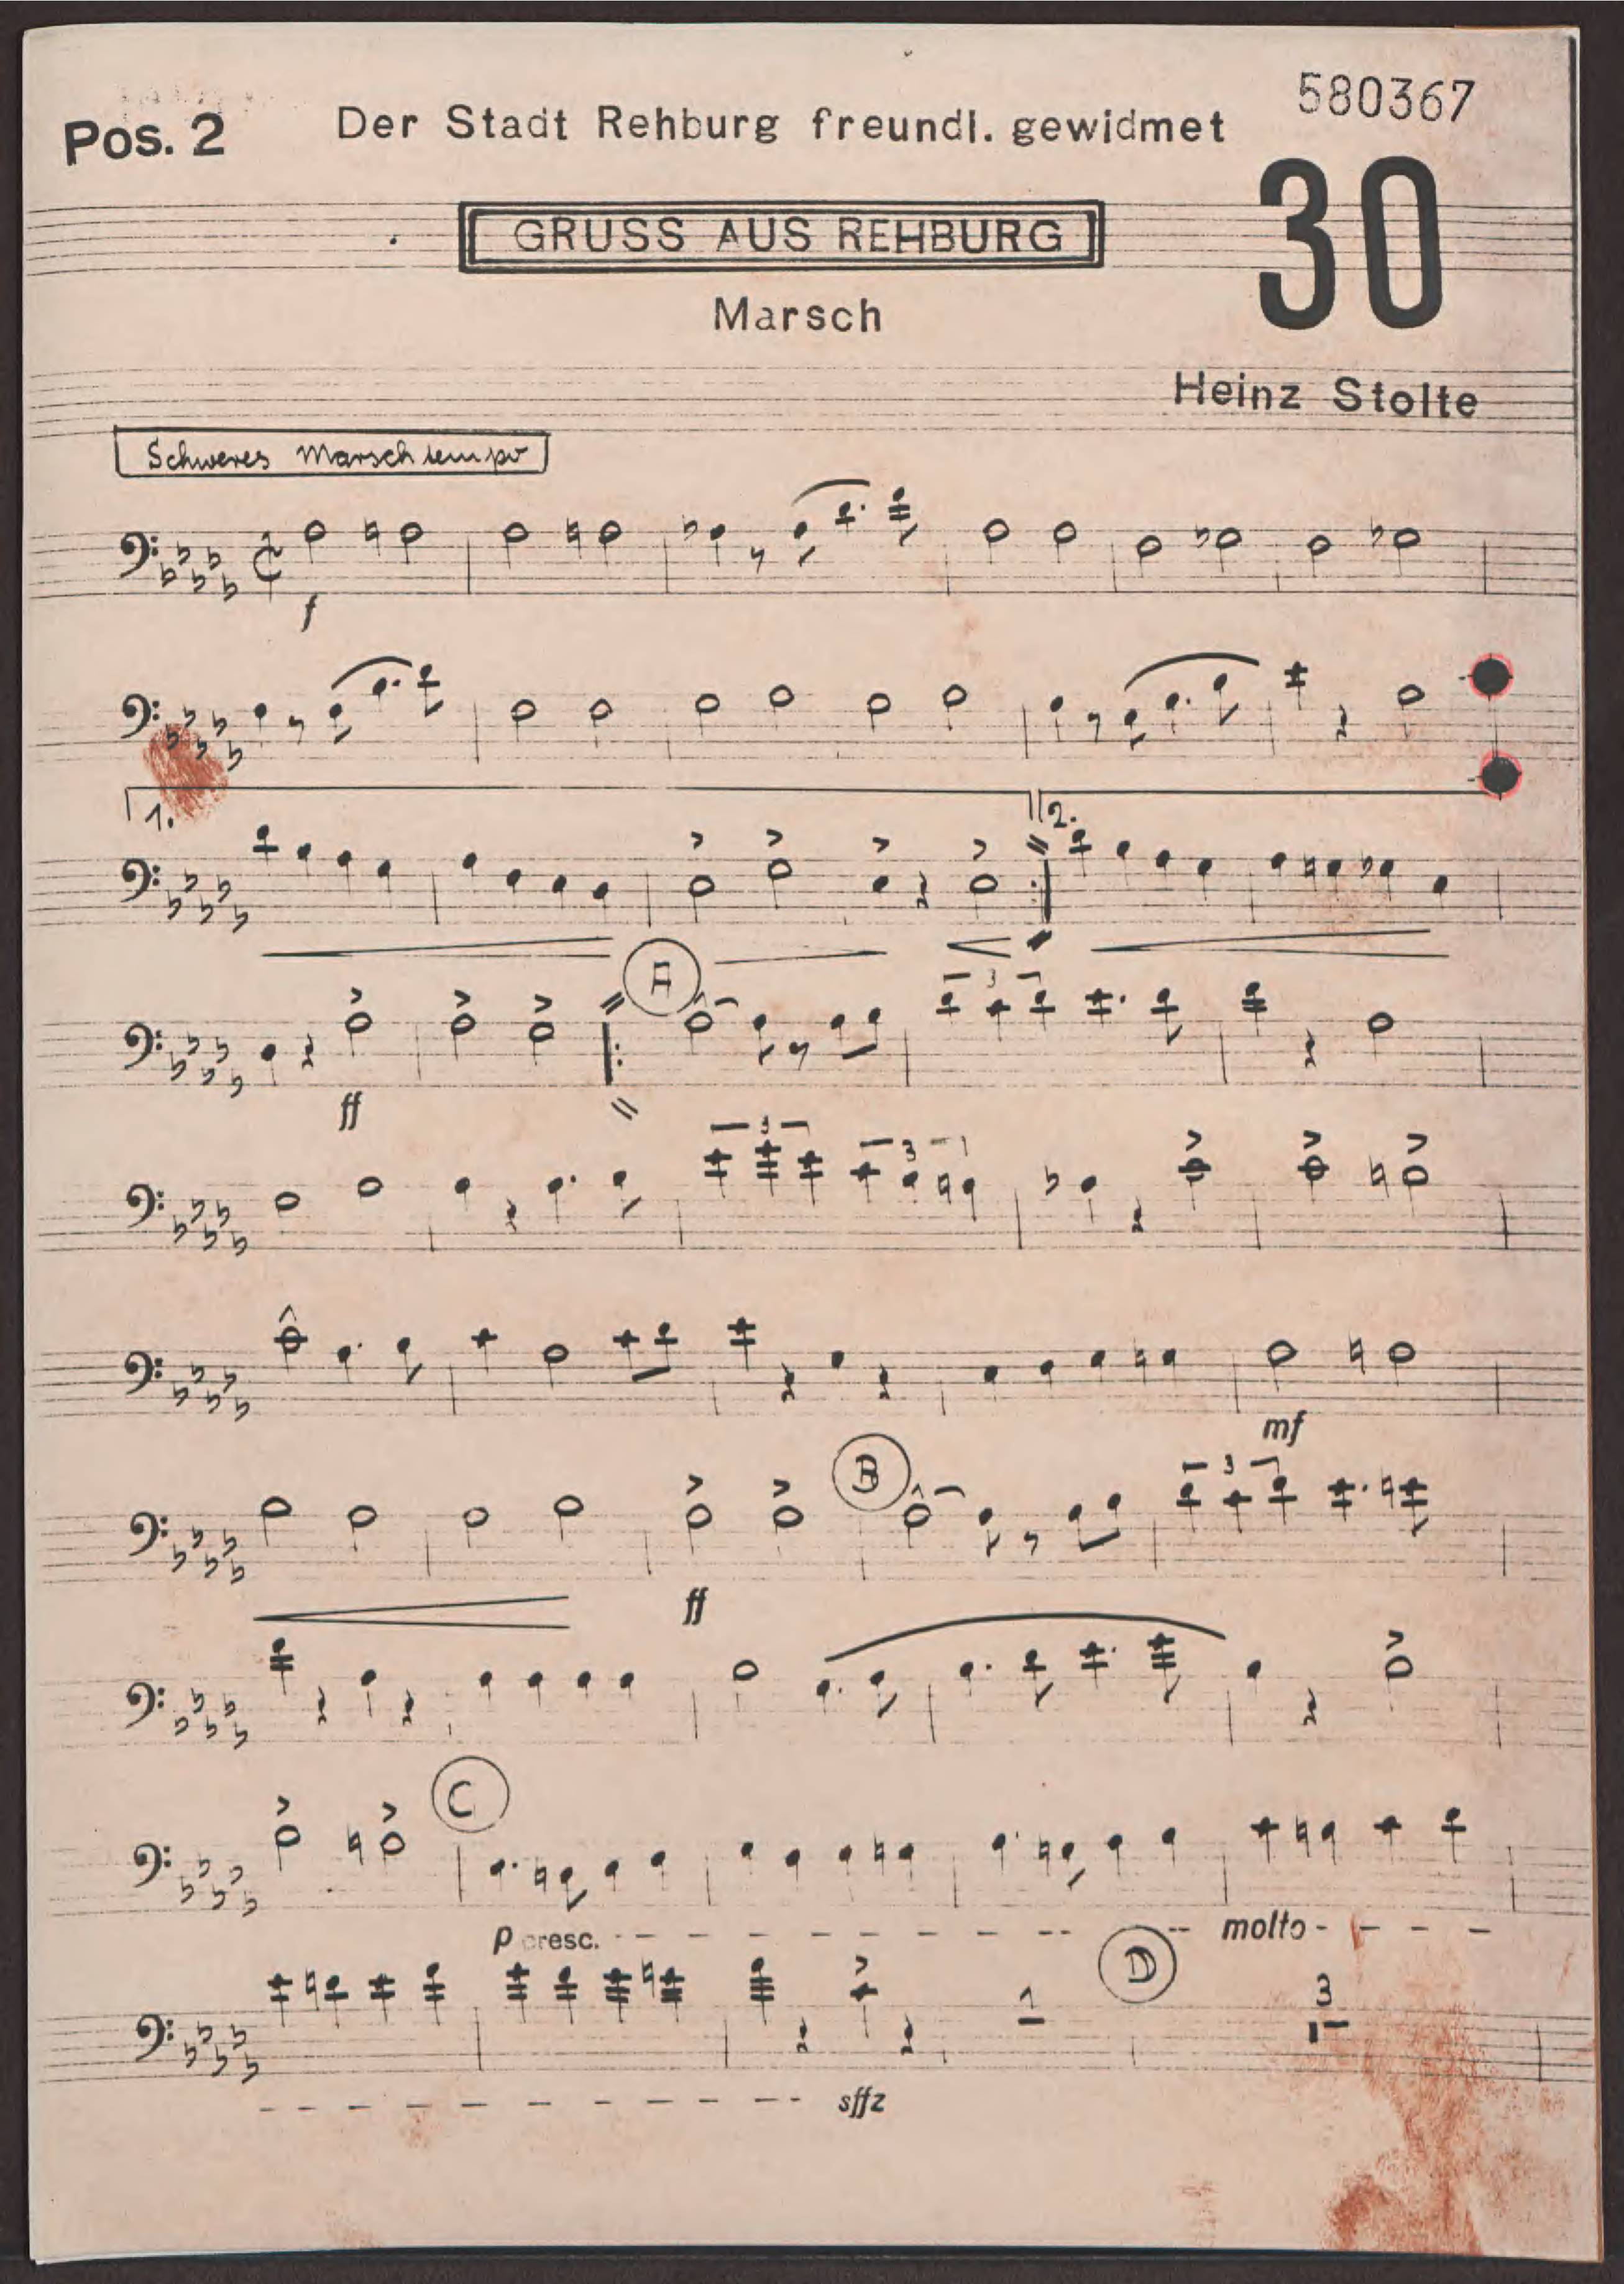 580367
Pos. 2 Der Stadt Rehburg freundl. gewidmet
30
GRUSS AUS REHBURG
Marsch
Heinz Stolte
Schweres Marschtempo
f
1. 2.
A
3
ff
3 3
mf
B
3
ff
C
p cresc. molto
D
1 3
sffz